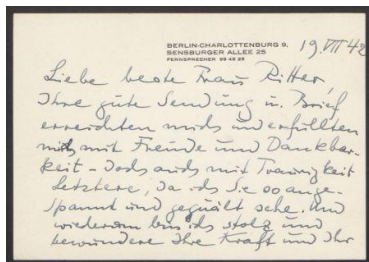 BERLIN-CHARLOTTENBURG 9,
SENSBURGER ALLEE 25
FERNSPRECHER 99 48 25
19. VII 42
Liebe beste Frau Ritter
Ihre gute Sendung u. Brief
erreichten mich und erfüllten
mich mit Freude und Dankbar-
keit – Doch auch mit Traurigkeit
Letztere, da ich Sie so ange-
spannt und gequält sehe. Und
wiederum bin ich stolz und
bewundere Ihre Kraft und Ihr